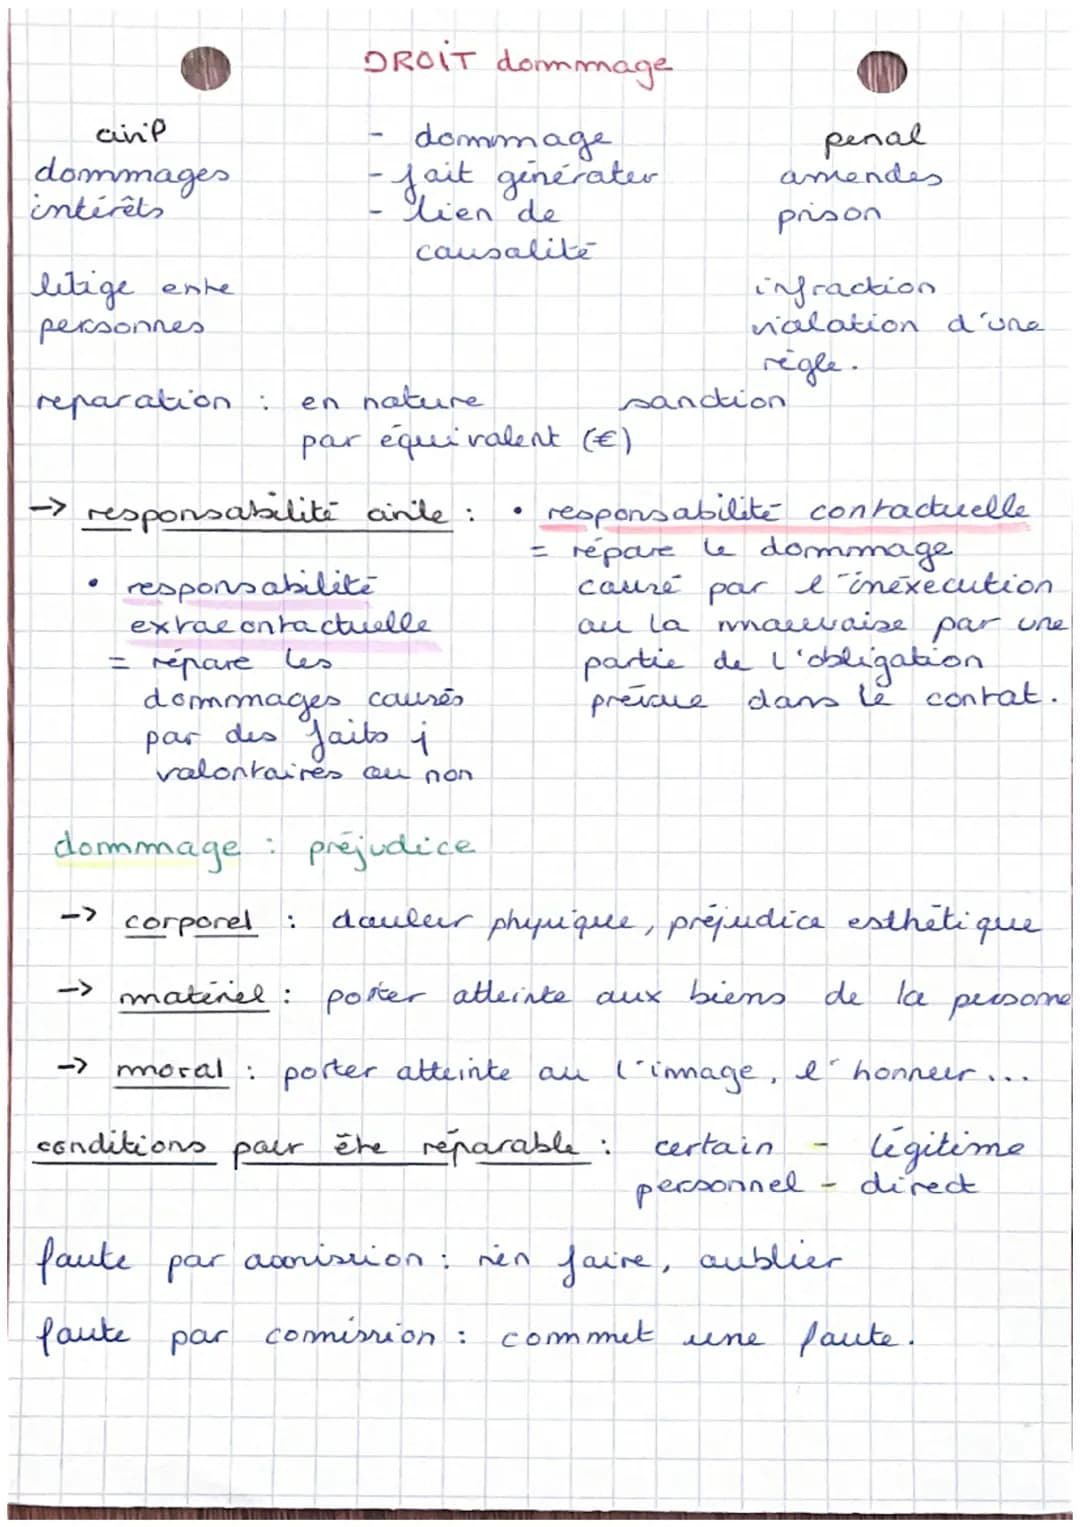 DROIT dommage
civil - dommage penal
dommages - fait générateur amendes
intérêts - lien de prison
causalité
litige entre infraction
personnes violation d'une
règle.
reparation : en nature sanction
par équivalent (€)
-> responsabilité civile : • responsabilité contractuelle
= répare le dommage
• responsabilité causé par l'inéxecution
extracontractuelle ou la mauvaise par une
= répare les partie de l'obligation
dommages causés prévue dans le contrat.
par des faits j
volontaires ou non
dommage : préjudice
-> corporel : douleur physique, préjudice esthétique
-> matériel : porter atteinte aux biens de la persone
-> moral : porter atteinte au l'image, l'honneur...
conditions pour être réparable : certain - légitime
personnel - direct
faute par aomission : rien faire, oublier
faute par comission : commet une faute.